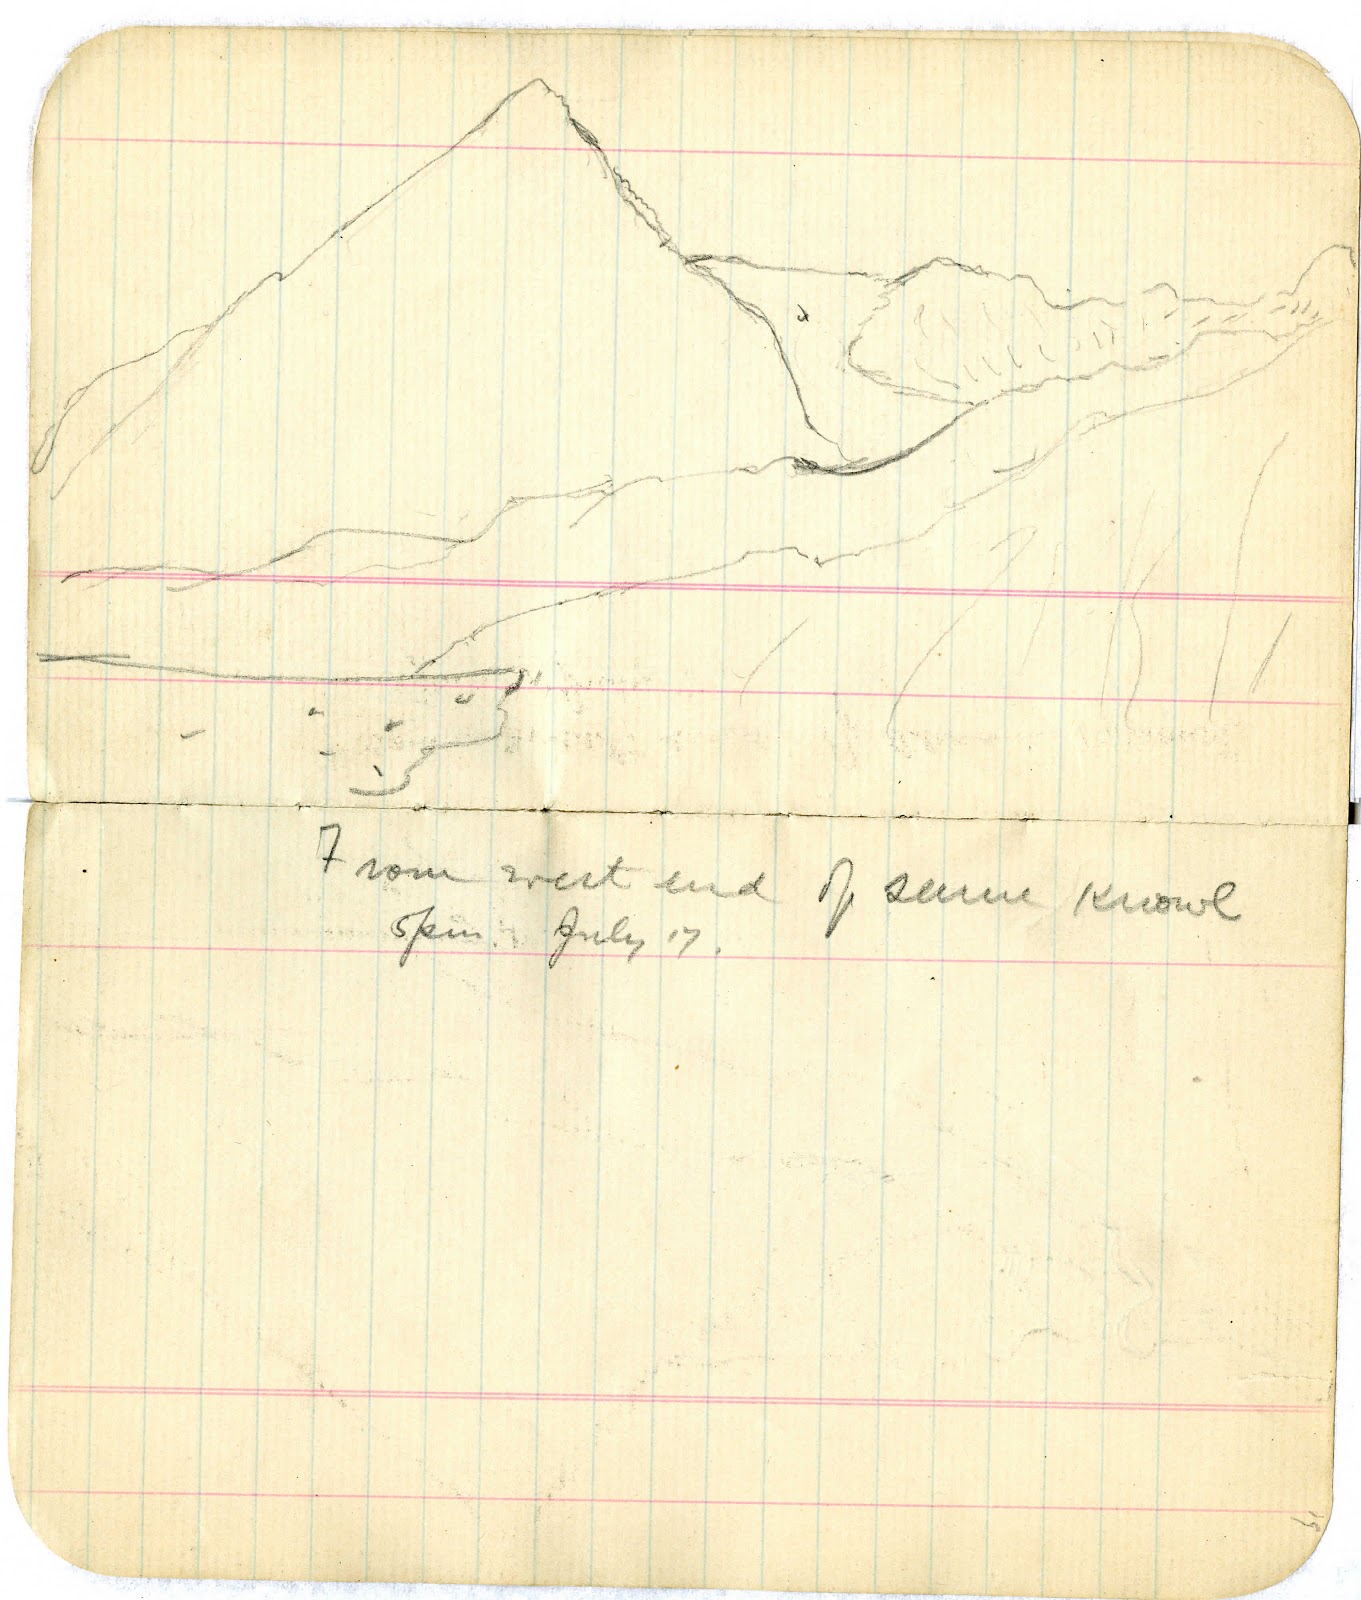 From west end of same Knowl
5 pm. July 17.